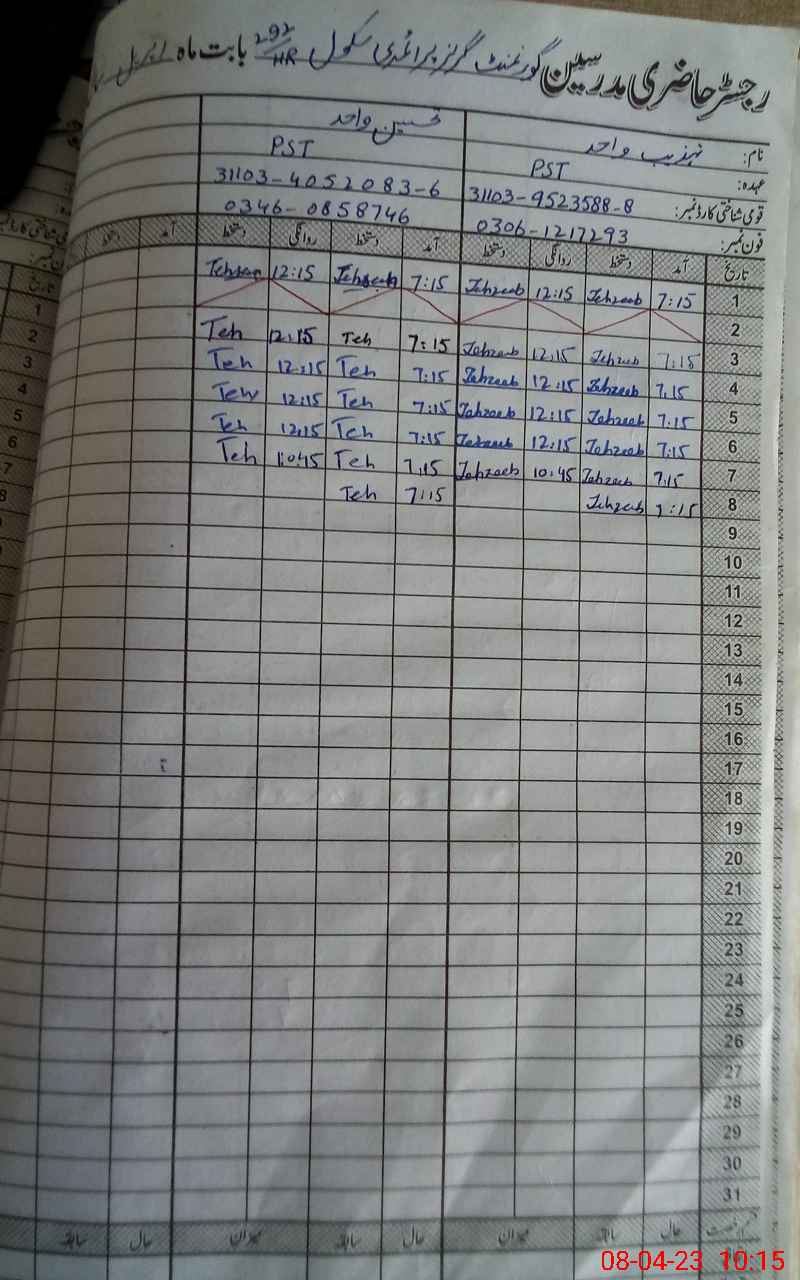 رجسٹر حاضری مدرسین گورنمنٹ گرلز پرائمری سکول 292/HR بابت ماہ اپریل
نام: تہذیب واحد تحسین واحد
عہدہ: PST PST
قومی شناختی کارڈ نمبر: 31103-9523588-8 31103-4052083-6
فون نمبر: 0306-1217293 0346-0858746
تاریخ آمد دستخط روانگی دستخط آمد دستخط روانگی دستخط آمد دستخط
1 7:15 Tehzeeb 12:15 Tehzeeb 7:15 Tehseen 12:15 Tehseen
2
3 7:15 Tehzeeb 12:15 Tehzeeb 7:15 Teh 12:15 Teh
4 7:15 Tehzeeb 12:15 Tehzeeb 7:15 Teh 12:15 Teh
5 7:15 Tehzeeb 12:15 Tehzeeb 7:15 Teh 12:15 Teh
6 7:15 Tehzeeb 12:15 Tehzeeb 7:15 Teh 12:15 Teh
7 7:15 Tehzeeb 10:45 Tehzeeb 7:15 Teh 10:45 Teh
8 7:15 Tehzeeb 7:15 Teh
9
10
11
12
13
14
15
16
17
18
19
20
21
22
23
24
25
26
27
28
29
30
31
قسم رخصت حال سابقہ میزان حال سابقہ میزان حال سابقہ
08-04-23 10:15